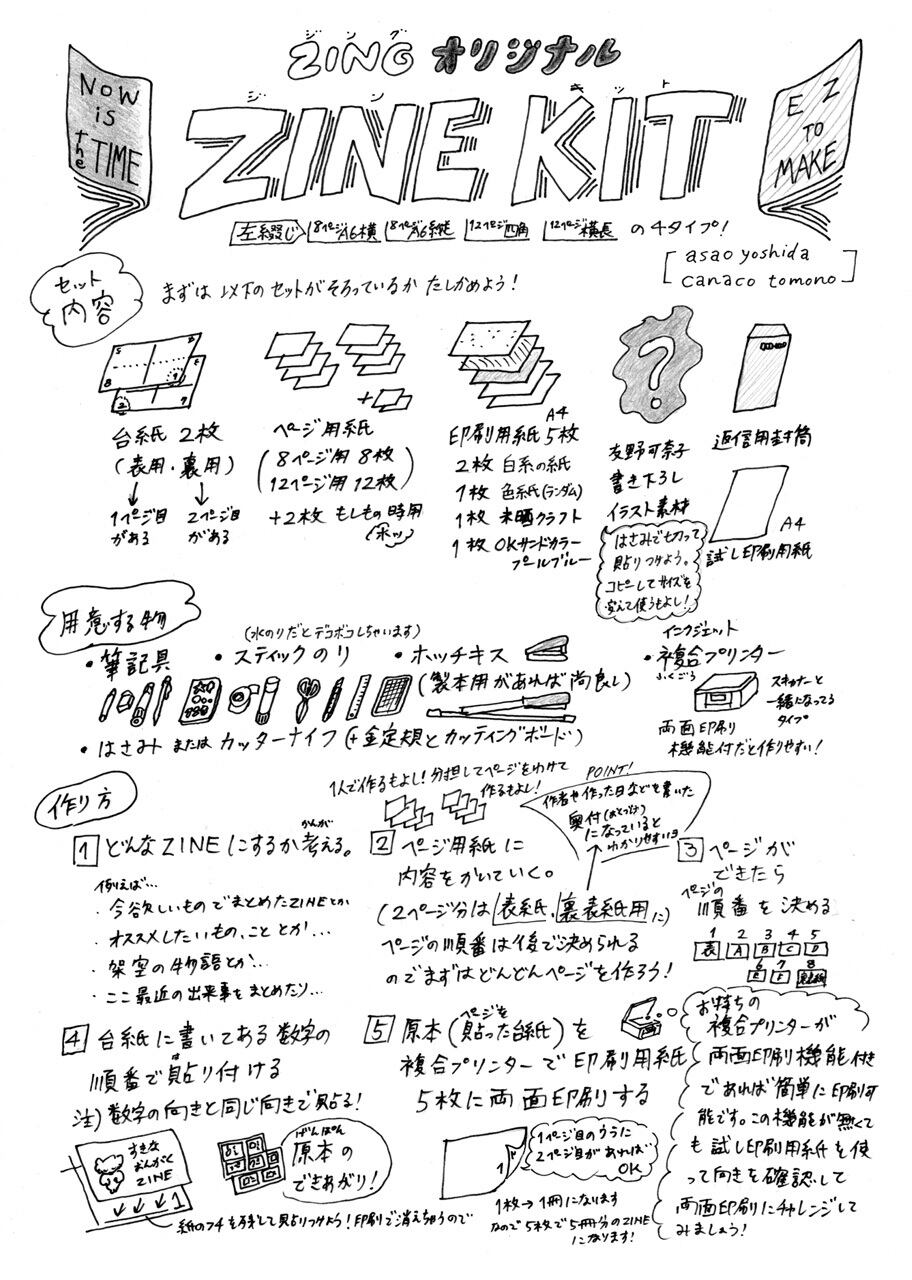 ジング
ZING オリジナル
ジン キット
ZINE KIT
NOW
is
the TIME
EZ
TO
MAKE
左綴じ 8ページA6横 8ページA6縦 12ページ四角 12ページ横長 の4タイプ!
asao yoshida
canaco tomono
セット
内容
まずは 以下のセットがそろっているか たしかめよう!
台紙 2枚
(表用・裏用)
1ページ目
がある
2ページ目
がある
ページ用紙
8ページ用 8枚
12ページ用 12枚
+2枚 もしもの時用
(ホッ)
A4
印刷用紙 5枚
2枚 白系の紙
1枚 色紙(ランダム)
1枚 未晒クラフト
1枚 OKサンドカラー
プールブルー
?
友野可奈子
書き下ろし
イラスト素材
はさみで切って
貼りつけよう。
コピーしてサイズを
変えて使うもよし!
返信用封筒
A4
試し印刷用紙
用意する物
・筆記具
(水のりだとデコボコしちゃいます)
・スティックのり
・ホッチキス
(製本用があれば尚良し)
・はさみ または カッターナイフ(+金定規とカッティングボード)
インクジェット
・複合プリンター
ふくごう
スキャナーと
一緒になってる
タイプ
両面印刷
機能付だと作りやすい!
作り方
1 どんなZINEにするか考える。
かんが
例えば…
・今欲しいものでまとめたZINEとか
・オススメしたいもの、こと とか…
・架空の物語とか…
・ここ最近の出来事をまとめたり…
1人で作るもよし!分担してページをわけて
作るもよし!
2 ページ用紙に
内容をかいていく。
(2ページ分は 表紙、裏表紙用に)
ページの順番は後で決められる
のでまずはどんどんページを作ろう!
POINT!
作者や作った日などを書いた
奥付(おくづけ)
になっていると
わかりやすいヨ
3 ページが
できたら
ページの
順番を決める
1 2 3 4 5
表 A B C D
6 7 8
E F 裏表紙
4 台紙に書いてある数字の
順番で貼り付ける
は
注)数字の向きと同じ向きで貼る!
すきな
おんがく
ZINE
1
げんぽん
原本の
できあがり!
紙のフチを残して貼りつけよう!印刷で消えちゃうので
5 原本(ページを貼った台紙)を
複合プリンターで印刷用紙
5枚に両面印刷する
1
1ページ目のうらに
2ページ目があれば
OK
1枚→1冊になります
なので5枚で5冊分のZINE
になります!
お持ちの
複合プリンターが
両面印刷機能付き
であれば簡単に印刷可
能です。この機能が無くて
も試し印刷用紙を使
って向きを確認して
両面印刷にチャレンジして
みましょう!